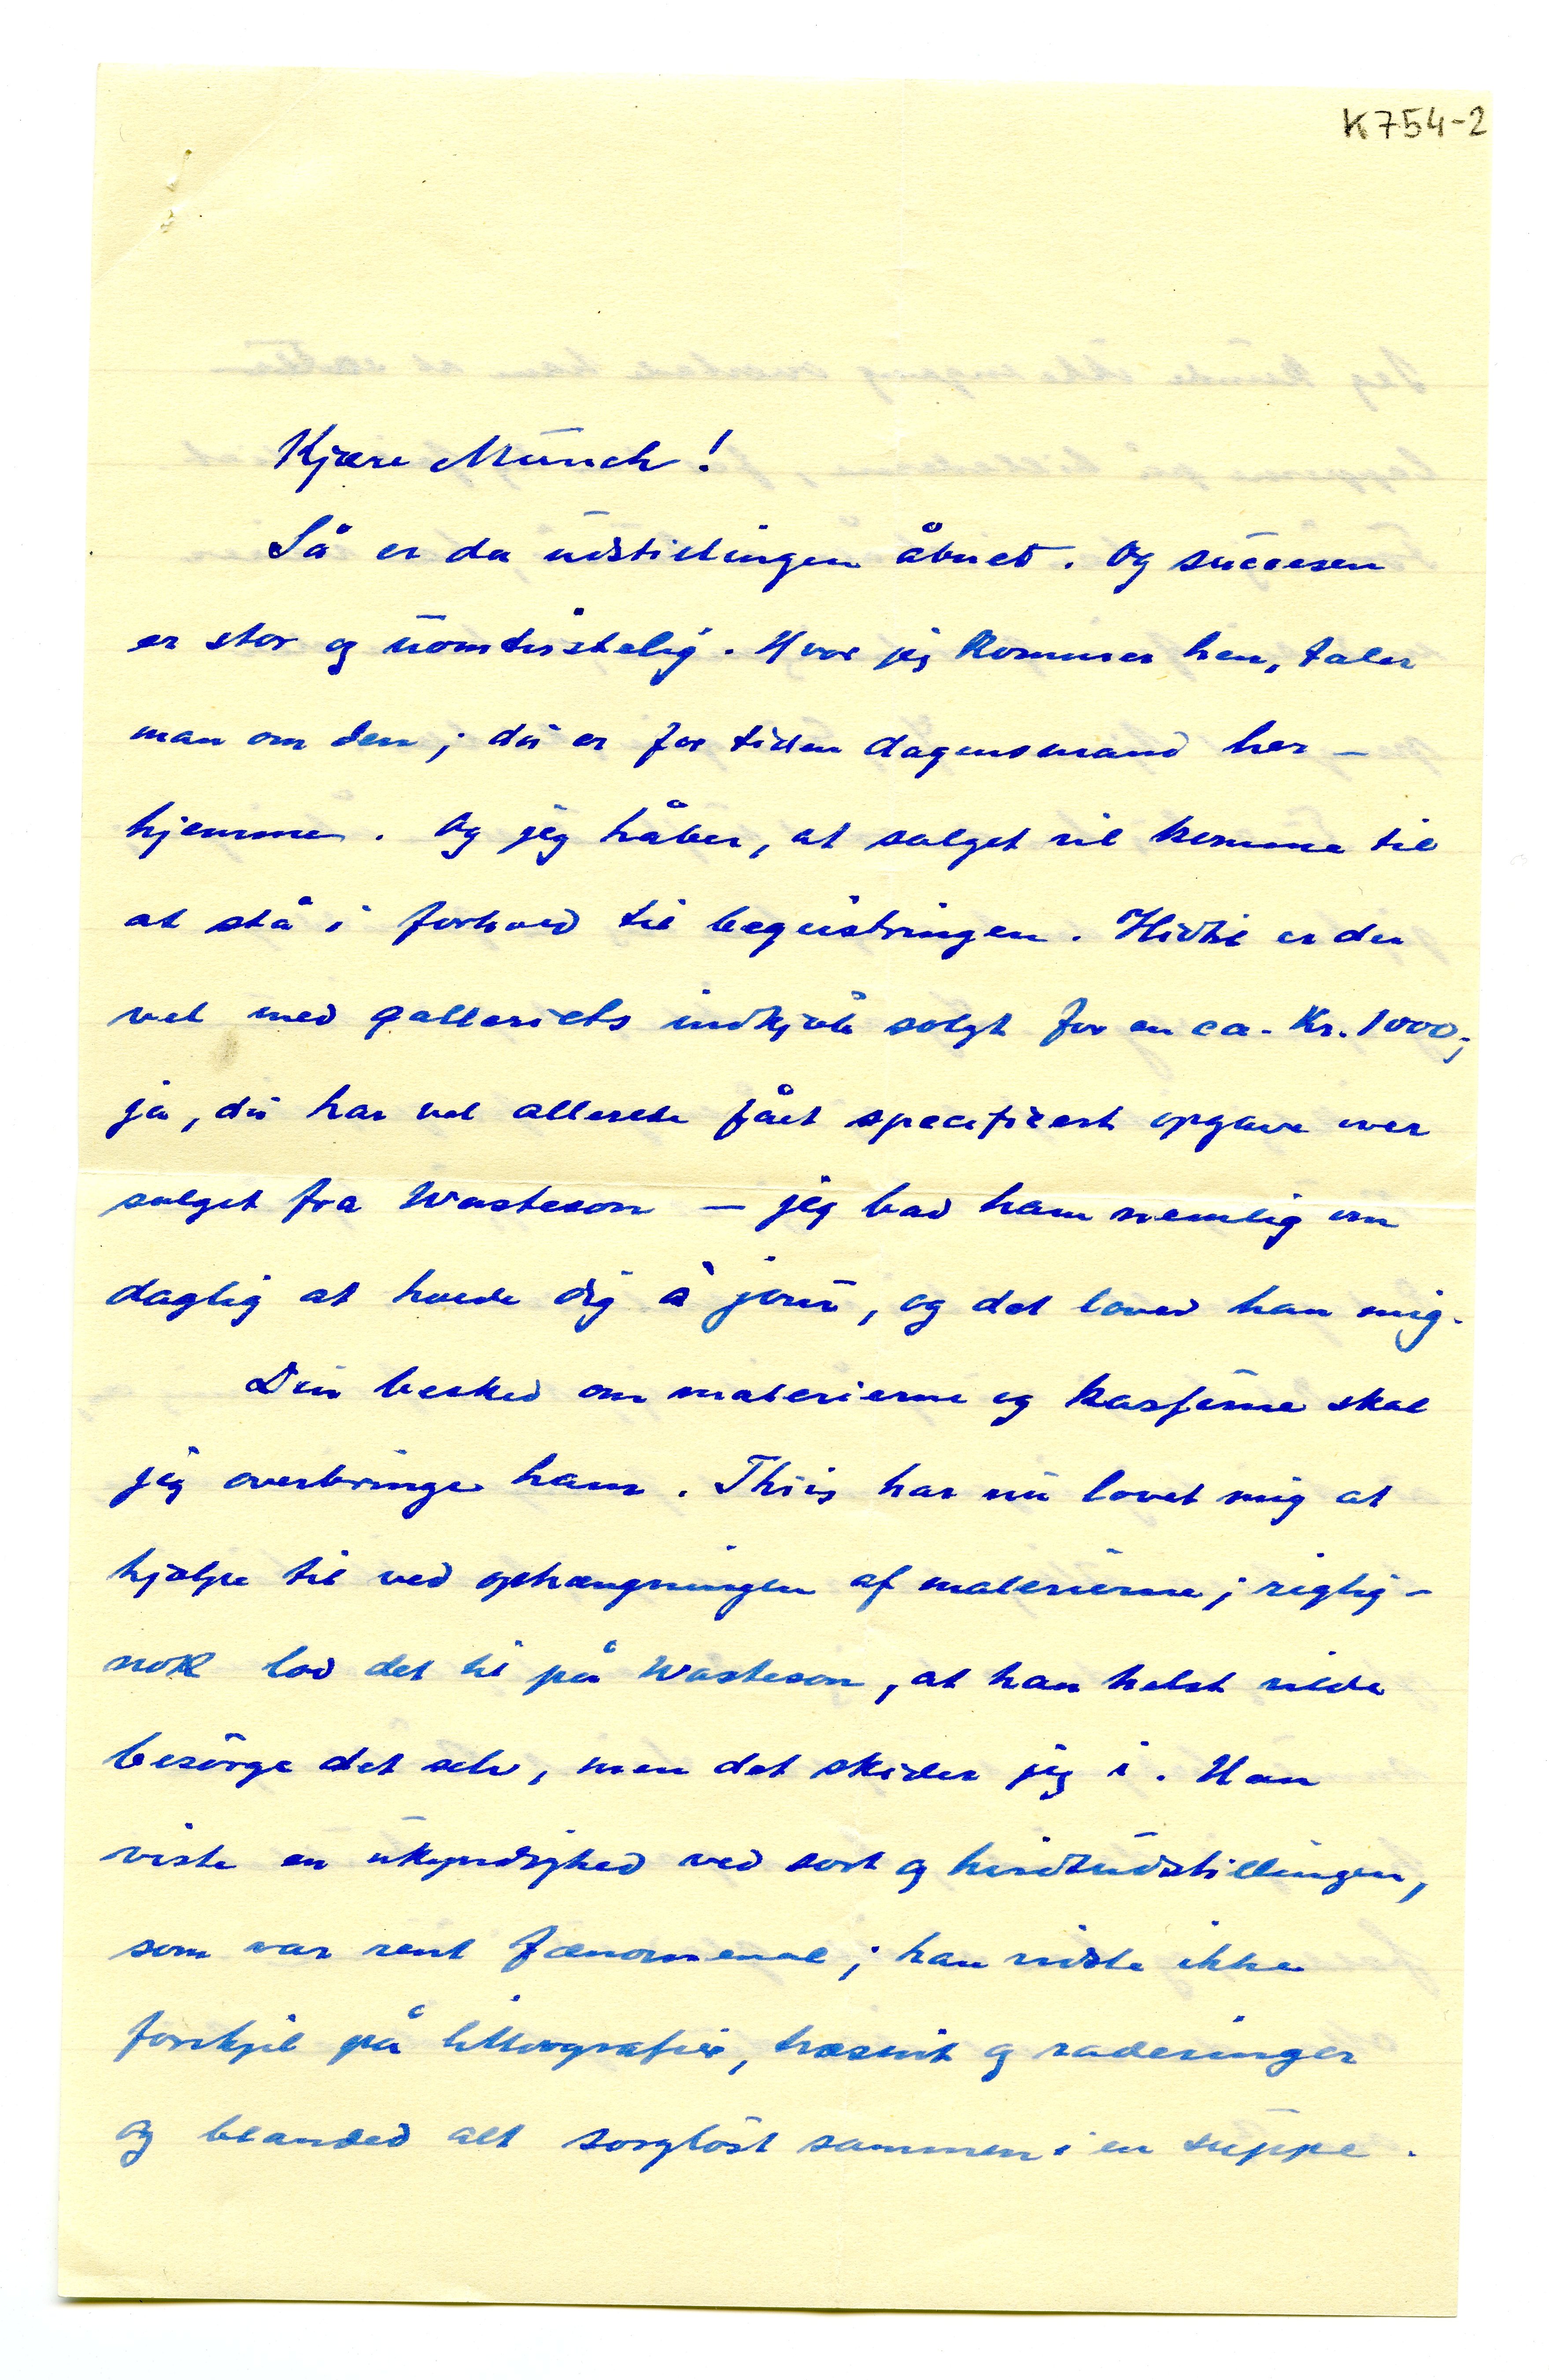 K754-2
Kjære Munch!
Så er da udstillingen åbnet. Og succesen
er stor og uomtvistelig. Hvor jeg kommer hen, taler
man om den; du er for tiden dagensmand her-
hjemme. Og jeg håber, at salget vil komme til
at stå i forhold til begeistringen. Hidtil er der
vel med galleriets indkjøb solgt for en ca. Kr. 1000;
ja, du har vel allerede fået specificert opgave over
salget fra Wasteson — jeg bad ham nemlig om
daglig at holde dig à jour, og det loved han mig.
Din besked om malerierne og kasserne skal
jeg overbringe ham. Thiis har nu lovet mig at
hjælpe til ved ophængningen af malerierne; rigtig-
nok lod det til på Wasteson, at han helst vilde
besörge det selv, men det skider jeg i. Han
viste en ukyndighed ved sort og hvidtudstillingen,
som var rent fænomenal; han vidste ikke
forskjel på lithografier, træsnit og raderinger
og blanded alt sorglöst sammen i en suppe.